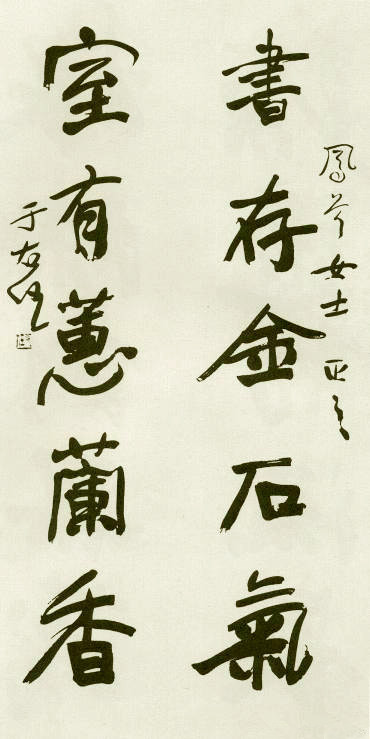 鳳岑女士正之
書存金石氣
室有蕙蘭香
于右任